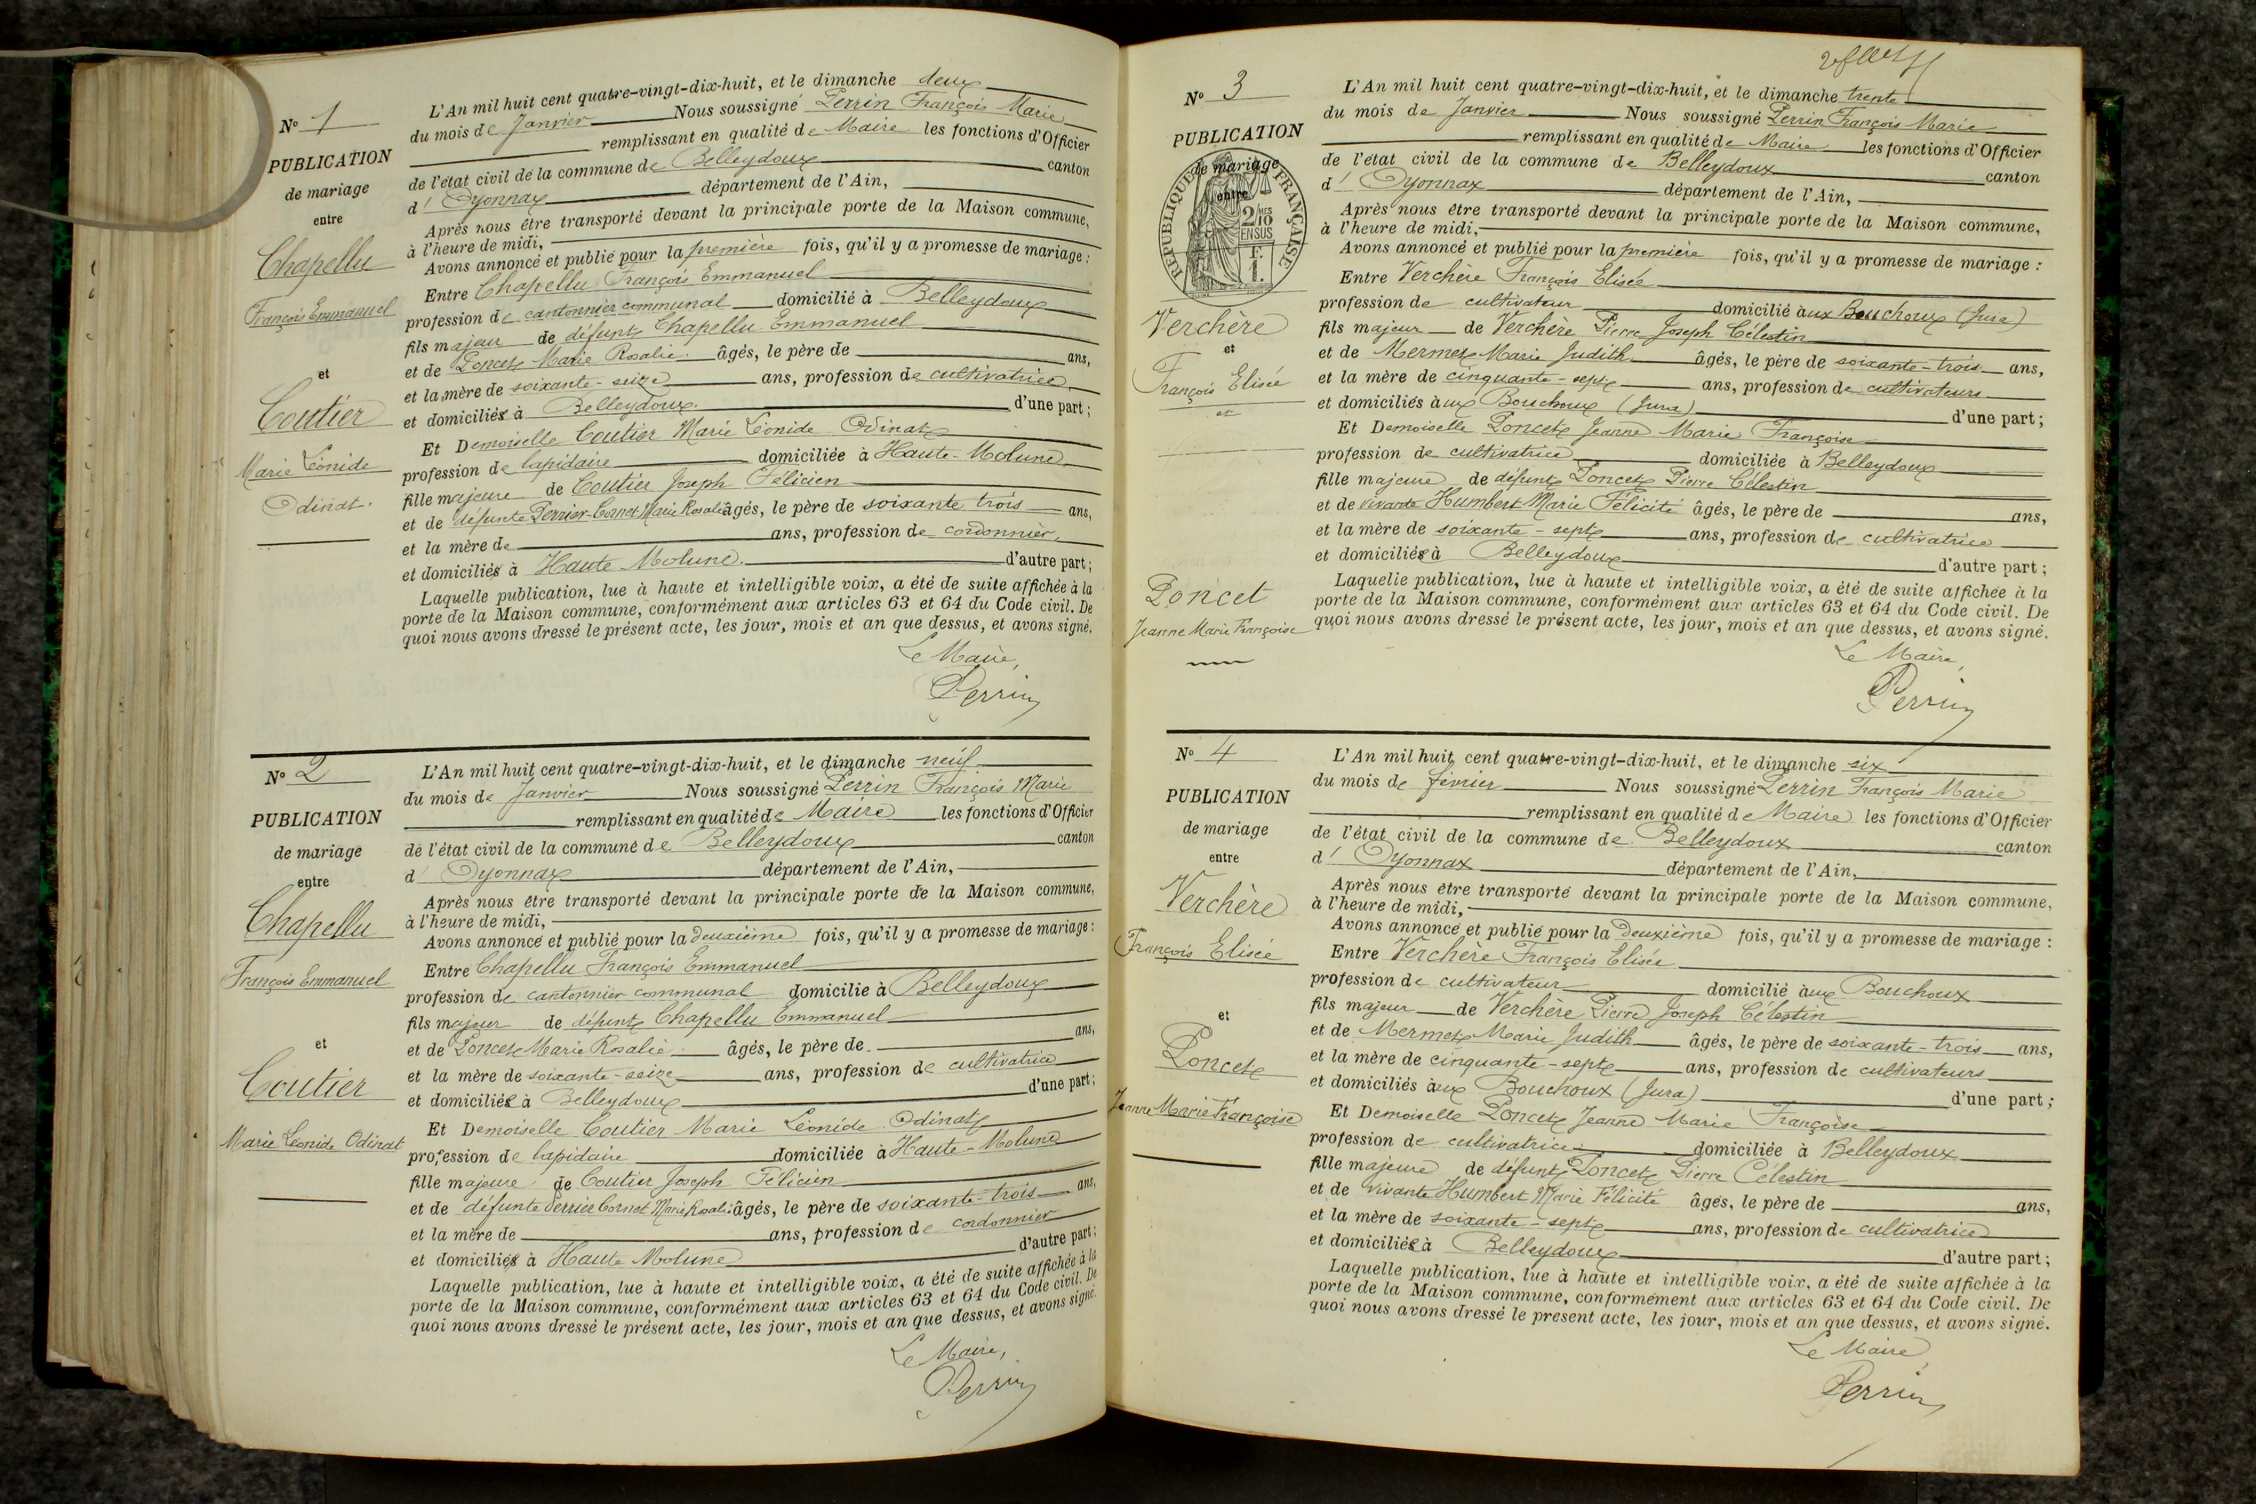 N° 1
PUBLICATION
de mariage
entre
Chapellu
François Emmanuel
et
Coutier
Marie Léonide
Odinat.
L'An mil huit cent quatre-vingt-dix-huit, et le dimanche deux
du mois de Janvier Nous soussigné Perrin François Marie
remplissant en qualité de Maire les fonctions d'Officier
de l'état civil de la commune de Belleydoux canton
d'Oyonnax département de l'Ain,
Après nous être transporté devant la principale porte de la Maison commune,
à l'heure de midi,
Avons annoncé et publié pour la première fois, qu'il y a promesse de mariage :
Entre Chapellu François Emmanuel
profession de cantonnier communal domicilié à Belleydoux
fils majeur de défunt Chapellu Emmanuel
et de Poncet Marie Rosalie âgés, le père de ans,
et la mère de soixante-seize ans, profession de cultivatrice
et domiciliés à Belleydoux. d'une part ;
Et Demoiselle Coutier Marie Léonide Odinat
profession de lapidaire domiciliée à Haute-Molune
fille majeure de Coutier Joseph Félicien
et de défunte Perrier-Cornet Marie Rosalie âgés, le père de soixante trois ans,
et la mère de ans, profession de cordonnier
et domiciliés à Haute Molune. d'autre part ;
Laquelle publication, lue à haute et intelligible voix, a été de suite affichée à la
porte de la Maison commune, conformément aux articles 63 et 64 du Code civil. De
quoi nous avons dressé le présent acte, les jour, mois et an que dessus, et avons signé.
Le Maire,
Perrin
N° 2
PUBLICATION
de mariage
entre
Chapellu
François Emmanuel
et
Coutier
Marie Léonide Odinat
L'An mil huit cent quatre-vingt-dix-huit, et le dimanche neuf
du mois de Janvier Nous soussigné Perrin François Marie
remplissant en qualité de Maire les fonctions d'Officier
de l'état civil de la commune de Belleydoux canton
d'Oyonnax département de l'Ain,
Après nous être transporté devant la principale porte de la Maison commune,
à l'heure de midi,
Avons annoncé et publié pour la deuxième fois, qu'il y a promesse de mariage :
Entre Chapellu François Emmanuel
profession de cantonnier communal domicilié à Belleydoux
fils majeur de défunt Chapellu Emmanuel
et de Poncet Marie Rosalie âgés, le père de ans,
et la mère de soixante-seize ans, profession de cultivatrice
et domiciliés à Belleydoux d'une part ;
Et Demoiselle Coutier Marie Léonide Odinat
profession de lapidaire domiciliée à Haute-Molune
fille majeure de Coutier Joseph Félicien
et de défunte Perrier Cornet Marie Rosalie âgés, le père de soixante-trois ans,
et la mère de ans, profession de cordonnier
et domiciliés à Haute Molune d'autre part ;
Laquelle publication, lue à haute et intelligible voix, a été de suite affichée à la
porte de la Maison commune, conformément aux articles 63 et 64 du Code civil. De
quoi nous avons dressé le présent acte, les jour, mois et an que dessus, et avons signé.
Le Maire,
Perrin
N° 3
PUBLICATION
de mariage
entre
RÉPUBLIQUE FRANÇAISE
2/10 MES
EN SUS
F.
1.
Verchère
et
François Elisée
et
Poncet
Jeanne Marie Françoise
L'An mil huit cent quatre-vingt-dix-huit, et le dimanche trente
du mois de Janvier Nous soussigné Perrin François Marie
remplissant en qualité de Maire les fonctions d'Officier
de l'état civil de la commune de Belleydoux canton
d'Oyonnax département de l'Ain,
Après nous être transporté devant la principale porte de la Maison commune,
à l'heure de midi,
Avons annoncé et publié pour la première fois, qu'il y a promesse de mariage :
Entre Verchère François Elisée
profession de cultivateur domicilié aux Bouchoux (Jura)
fils majeur de Verchère Pierre Joseph Célestin
et de Mermet Marie Judith âgés, le père de soixante-trois ans,
et la mère de cinquante-sept ans, profession de cultivateurs
et domiciliés aux Bouchoux (Jura) d'une part ;
Et Demoiselle Poncet Jeanne Marie Françoise
profession de cultivatrice domiciliée à Belleydoux
fille majeure de défunt Poncet Pierre Célestin
et de vivante Humbert Marie Félicité âgés, le père de ans,
et la mère de soixante-sept ans, profession de cultivatrice
et domiciliés à Belleydoux d'autre part ;
Laquelle publication, lue à haute et intelligible voix, a été de suite affichée à la
porte de la Maison commune, conformément aux articles 63 et 64 du Code civil. De
quoi nous avons dressé le présent acte, les jour, mois et an que dessus, et avons signé.
Le Maire,
Perrin
N° 4
PUBLICATION
de mariage
entre
Verchère
François Elisée
et
Poncet
Jeanne Marie Françoise
L'An mil huit cent quatre-vingt-dix-huit, et le dimanche six
du mois de février Nous soussigné Perrin François Marie
remplissant en qualité de Maire les fonctions d'Officier
de l'état civil de la commune de Belleydoux canton
d'Oyonnax département de l'Ain,
Après nous être transporté devant la principale porte de la Maison commune,
à l'heure de midi,
Avons annoncé et publié pour la deuxième fois, qu'il y a promesse de mariage :
Entre Verchère François Elisée
profession de cultivateur domicilié aux Bouchoux
fils majeur de Verchère Pierre Joseph Célestin
et de Mermet Marie Judith âgés, le père de soixante-trois ans,
et la mère de cinquante-sept ans, profession de cultivateurs
et domiciliés aux Bouchoux (Jura) d'une part ;
Et Demoiselle Poncet Jeanne Marie Françoise
profession de cultivatrice domiciliée à Belleydoux
fille majeure de défunt Poncet Pierre Célestin
et de vivante Humbert Marie Félicité âgés, le père de ans,
et la mère de soixante-sept ans, profession de cultivatrice
et domiciliés à Belleydoux d'autre part ;
Laquelle publication, lue à haute et intelligible voix, a été de suite affichée à la
porte de la Maison commune, conformément aux articles 63 et 64 du Code civil. De
quoi nous avons dressé le présent acte, les jour, mois et an que dessus, et avons signé.
Le Maire,
Perrin